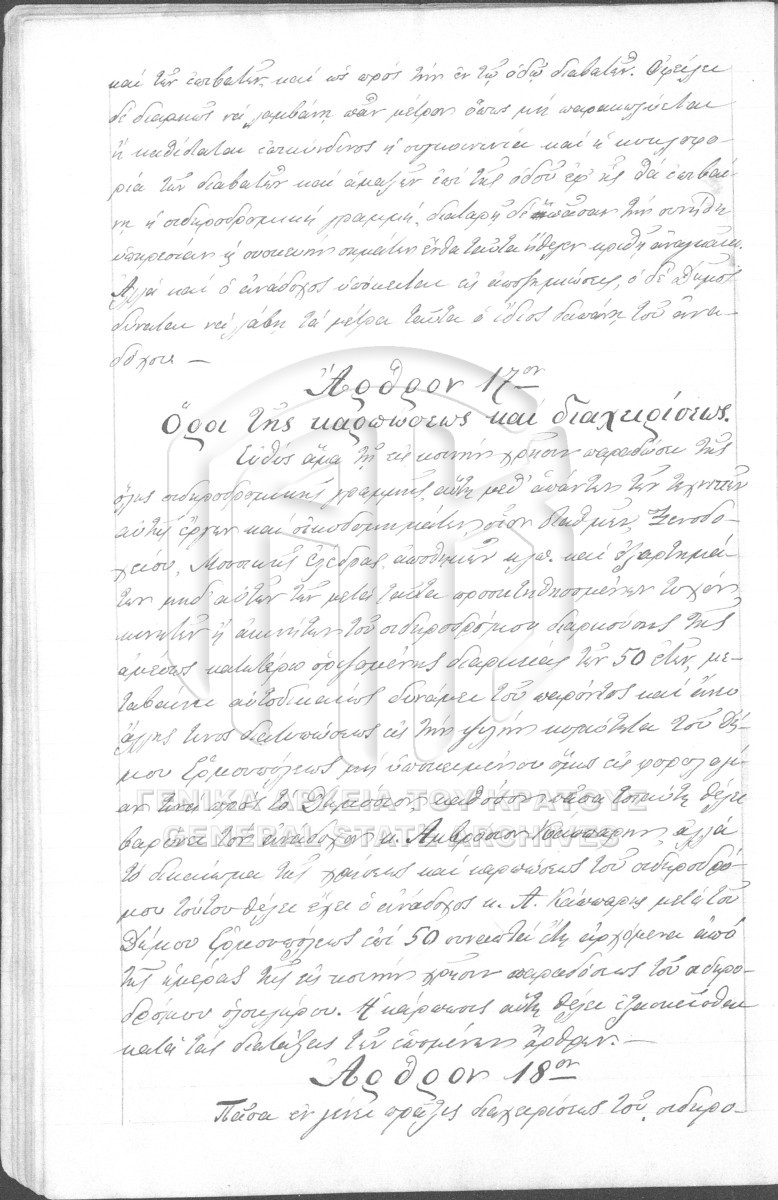 καὶ τῶν ἐπιβατῶν καὶ ὡς πρὸς τὴν ἐν τῷ ὁδῷ διαβατῶν. Ὀφείλει
δὲ διαρκῶς νὰ λαμβάνῃ πᾶν μέτρον ὅπως μὴ παρακωλύεται
ἢ καθίσταται ἐπικίνδυνος ἡ συγκοινωνία καὶ ἡ κυκλοφο-
ρία τῶν διαβατῶν καὶ ἁμαξῶν ἐπὶ τῆς ὁδοῦ ἐφ' ἧς θὰ ἐπιβαί-
νῃ ἡ σιδηροδρομικὴ γραμμή, δὲ πᾶσαν τὴν συνήθη
ὑπηρεσίαν ἢ συσκευὴν σημάτων ἔνθα ταῦτα ἤθελεν κριθῆ ἀναγκαῖα.
Ἀλλὰ καὶ ὁ ἀνάδοχος ὑπόκειται εἰς ἀποζημιώσεις, ὁ δὲ Δῆμος
δύναται νὰ λάβῃ τὰ μέτρα ταῦτα ὁ ἴδιος δαπάνῃ τοῦ ἀνα-
δόχου —
Ἄρθρον 17ον
Ὅροι τῆς καρπώσεως καὶ διαχειρίσεως.
Εὐθὺς ἅμα τῇ εἰς κοινὴν χρῆσιν παραδόσει τῆς
ὅλης σιδηροδρομικῆς γραμμῆς, αὕτη μεθ' ἁπάντων τῶν τεχνικῶν
αὐτῆς ἔργων καὶ οἰκοδομημάτων, οἷον σταθμῶν, Ξενοδο-
χείου, Μουσικῆς ἐξέδρας, ἀποθηκῶν κλπ. καὶ ἐξαρτημά-
των μηδ' αὐτῶν τῶν μετὰ ταῦτα προσκτηθησομένων τυχόν
κινητῶν ἢ ἀκινήτων τοῦ σιδηροδρόμου διαρκούσης τῆς
ἀμέσως κατωτέρω ὁριζομένης διαρκείας τῶν 50 ἐτῶν, με-
ταβαίνει αὐτοδικαίως δυνάμει τοῦ παρόντος καὶ ἄνευ
ἄλλης τινὸς διατυπώσεως εἰς τὴν ψιλὴν κυριότητα τοῦ Δή-
μου Ἑρμουπόλεως μὴ ὑποκειμένου ὅμως εἰς φορολογί-
αν τινα πρὸς τὸ Δημόσιον, καθόσον πᾶσα τοιαύτη θέλει
βαρύνει τὸν ἀνάδοχον κ. Ἀμβρόσιον Κάππαρην, ἀλλὰ
τὸ δικαίωμα τῆς χρήσεως καὶ καρπώσεως τοῦ σιδηροδρό-
μου τούτου θέλει ἔχει ὁ ἀνάδοχος κ. Α. Κάππαρης μετὰ τοῦ
Δήμου Ἑρμουπόλεως ἐπὶ 50 συναπτὰ ἔτη ἀρχόμενα ἀπὸ
τῆς ἡμέρας τῆς εἰς κοινὴν χρῆσιν παραδόσεως τοῦ σιδηρο-
δρόμου ὁλοκλήρου. Ἡ κάρπωσις αὕτη θέλει ἐξασκεῖσθαι
κατὰ τὰς διατάξεις τῶν ἑπομένων ἄρθρων. —
Ἄρθρον 18ον
Πᾶσα ἐν γένει πρᾶξις διαχειρίσεως τοῦ σιδηρο-
ΓΕΝΙΚΑ ΑΡΧΕΙΑ ΤΟΥ ΚΡΑΤΟΥΣ
GENERAL STATE ARCHIVES